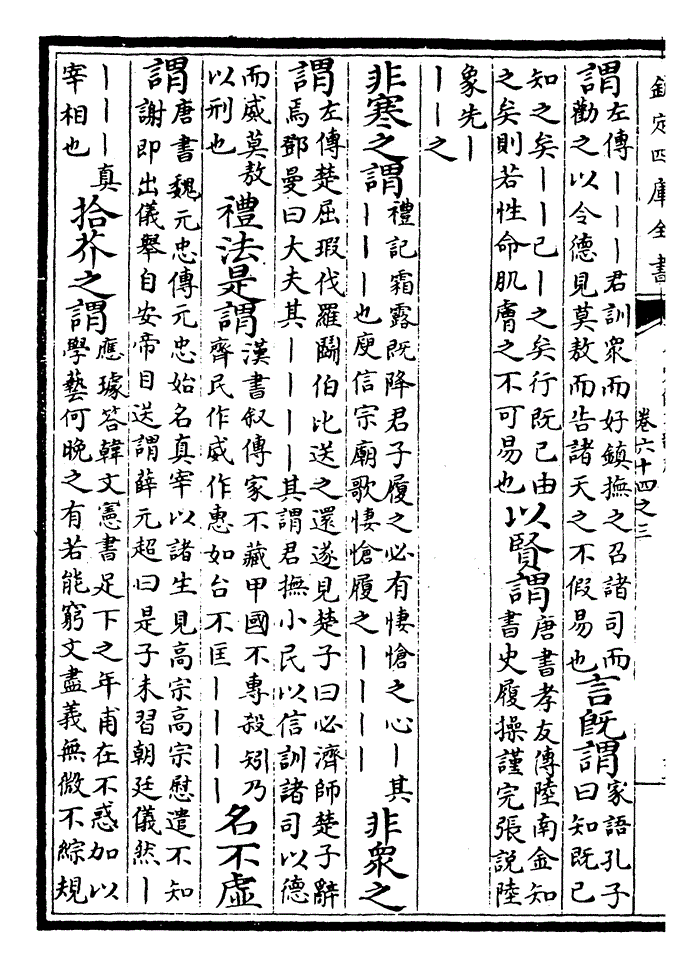 欽定四庫全書
卷六十四之三
謂
左傳丨丨丨君訓衆而好鎮撫之召諸司而
勸之以令德見莫敖而告諸天之不假易也
言既謂
家語孔子
曰知既已
知之矣丨丨已丨之矣行既已由
之矣則若性命肌膚之不可易也
以賢謂
唐書孝友傳陸南金知
書史履操謹完張説陸
象先丨
丨丨之
非寒之謂
禮記霜露既降君子履之必有悽愴之心丨其
丨丨丨也庾信宗廟歌悽愴履之丨丨丨丨
非衆之
謂
左傳楚屈瑕伐羅鬬伯比送之還遂見楚子曰必濟師楚子辭
焉鄧曼曰大夫其丨丨丨丨其謂君撫小民以信訓諸司以德
而威莫敖
以刑也
禮法是謂
漢書叙傳家不藏甲國不專殺矧乃
齊民作威作惠如台不匡丨丨丨丨
名不虛
謂
唐書魏元忠傳元忠始名真宰以諸生見高宗高宗慰遣不知
謝即出儀舉自安帝目送謂薛元超曰是子未習朝廷儀然丨
丨丨丨真
宰相也
拾芥之謂
應璩答韓文憲書足下之年甫在不惑加以
學藝何晚之有若能窮文盡義無微不綜規